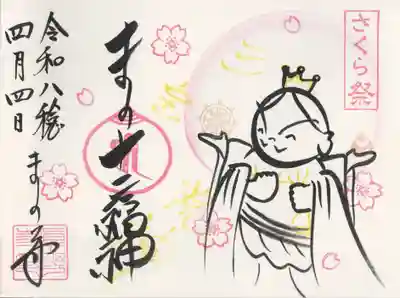 さくら祭
まの十二福神
令和八
四月四日
まの